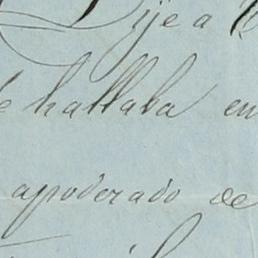 Dije a
hallaba en
apoderado de